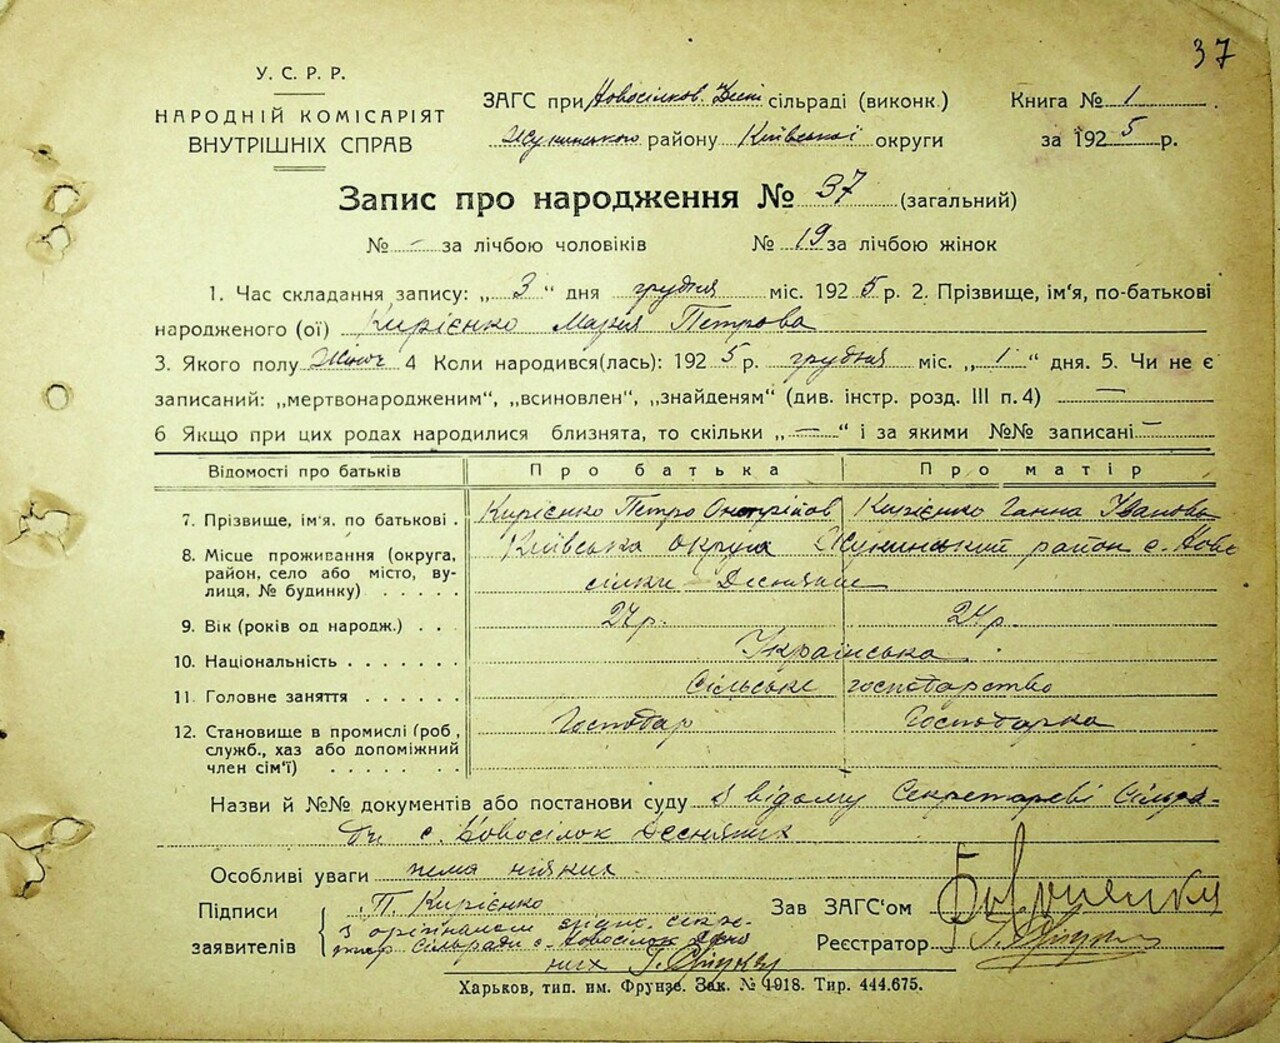 37
У. С. Р. Р.
НАРОДНІЙ КОМІСАРІЯТ
ВНУТРІШНІХ СПРАВ
ЗАГС при Новосілков. Десн сільраді (виконк.)
Жукинського району Київської округи
Книга № 1
за 1925 р.
Запис про народження № 37 (загальний)
№ - за лічбою чоловіків № 19 за лічбою жінок
1. Час складання запису: „ 3 “ дня грудня міс. 1925 р. 2. Прізвище, ім'я, по-батькові
народженого (ої) Кирієнко Марія Петрова
3. Якого полу Жіноч 4 Коли народився(лась): 1925 р. грудня міс. „ 1 “ дня. 5. Чи не є
записаний: „мертвонародженим“, „всиновлен“, „знайденям“ (див. інстр. розд. III п. 4) —
6 Якщо при цих родах народилися близнята, то скільки „ — “ і за якими №№ записані —
Відомості про батьків Про батька Про матір
7. Прізвище, ім'я, по батькові . Кирієнко Петро Кирієнко Ганна Іванова
8. Місце проживання (округа, район, село або місто, вулиця, № будинку) . . . . . Київська округа Жукинський район с. Ново
сілки Деснянські
9. Вік (років од народж.) . . . 27 р. 24 р.
10. Національність . . . . . . . Українська
11. Головне заняття . . . . . . Сільське господарство
12. Становище в промислі (роб, служб., хаз або допоміжний член сім'ї) . . . . . . Господар Господарка
Назви й №№ документів або постанови суду З відому Секретареві Сільра-
ди с. Новосілок Десняних
Особливі уваги нема ніяких
Підписи заявителів П. Кирієнко
З оригіналом згідно. секре-
тар Сільради с. Новосілок Десня
них Г.
Зав ЗАГС'ом
Реєстратор Г.
Харьков, тип. им. Фрунзе. Зак. № 1918. Тир. 444.675.